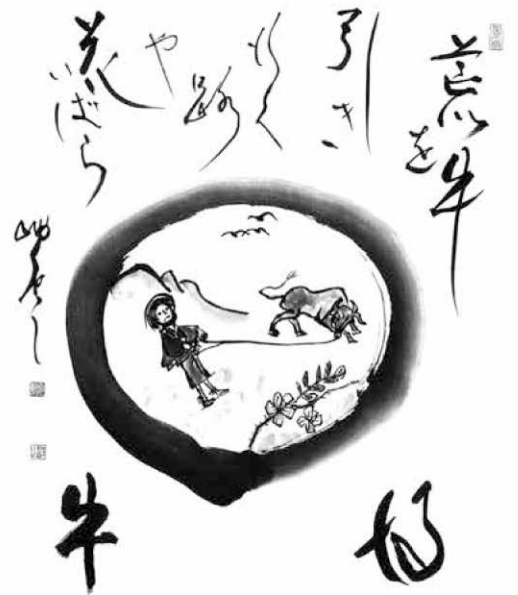 荒牛を
引き
行く
路
や
花
いばら
得牛